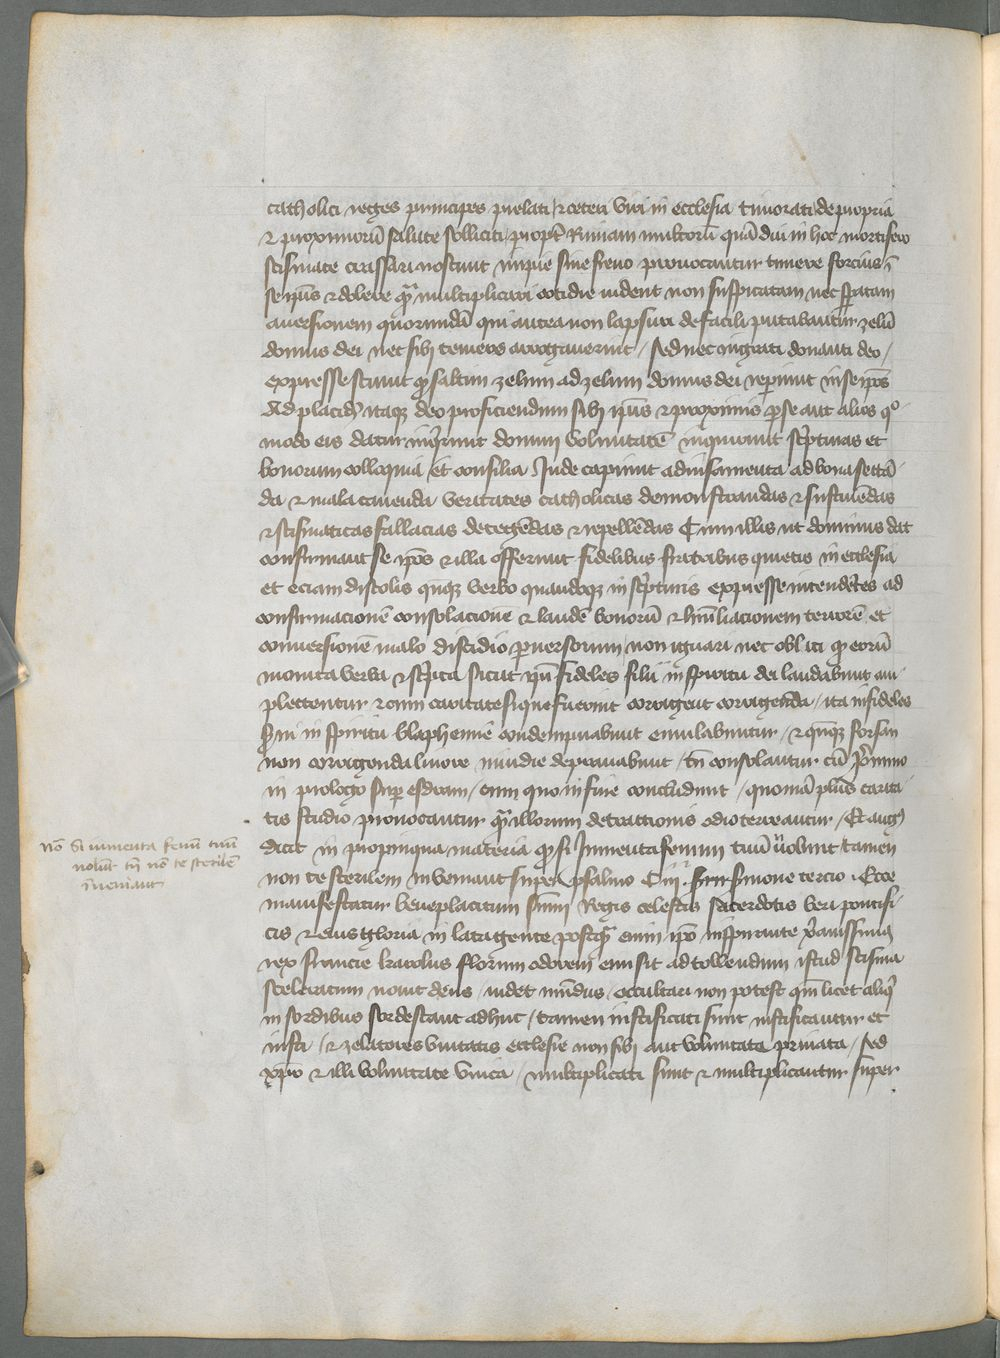 catholici reges principes prelati / ceteri viri in ecclesia timorati de propria
& proximorū salute solliciti propt̄ Ruinam multorū quā diu in hoc mortifero
scismate crassari noscunt impie sine freno prouocantur timere forcius ī
se ip̄is & dolere qr̄ multiplicari cotidie vident non suspicatam nec sp̄atam
auersionem quorundā qui antea non lapsuri de facili putabantur zelū
domus dei nec sibi temere arrogauerint / Sed nec ingrati donanti deo /
expresse sciunt qd̄ saltim zelum ad zelum domus dei rep̄iunt in se ip̄os
Ad placid̄ itaqz deo proficiendum sibi ip̄is & proximis p̄ se aut alios qo
modo eis datur inḡrunt domini voluntatē inquirunt sc̄pturas et
bonorum colloquia / et consilia Inde capiunt aduisamenta ad bona sectā
da & mala cauenda / veritates catholicas demonstrandas & sustinēdas
& scismaticas fallacias detegēdas & repellēdas Cum illis ut dominus dat
confirmant se ip̄os & illa offerunt fidelibus fratribus quietis in ecclesia
et eciam discolis qn̄qz verbo quandoqz in sc̄pturis expresse intendētes ad
confirmacionē consolacionē & laudē bonorū & humiliacionem terrorē et
conuersionē malo discidio p̄uersorum / non ignari nec obliti qd̄ eorū
monita verba & sc̄pta sicut ip̄i fideles filii in spiritu dei laudabunt am
plectentur & cum caritate si que fuerint corrigent corrigenda / ita infideles
s̄ui in spiritu blasphemie condempnabunt emulabuntur / & qn̄qz forsan
non corrigenda liuore inuidie deprauabunt / tn̄ consolantur cū Iēronimo
in prologo sup̄ esdram / cum quo in fine concludunt / quoniā plus carita
tis studio prouocantur qr̄ illorum detractionis odio terreantur / Et augs
dicit in propinqua materia qd̄ si Iumenta fenum tuū noluerint tamen
non te sterilem inveniant super psalmo Ciij sermone tercio . Ecce
manifestatur beneplacitum sūmi Regis celestis sacerdotis veri pontifi
cis & eius gloria in lata gente postqr̄ enim ip̄o inspirante x̄anissimus
rex francie karolus florum odorem emisit ad tollendum istud scisma
sceleratum nouit deus / videt mūdus / occultari non potest qm̄ licet aliq̄
in sordibus sordescant adhuc / tamen iustificati sunt iustificantur et
iusti / & zelatores vnitatis ecclesie non sibi aut voluntate priuata / Sed
xp̄o & illi voluntate vnica / multiplicati sunt & multiplicantur super
nō Si iumenta fenū tuū
nolūt tn̄ nō te sterilē
īueniant